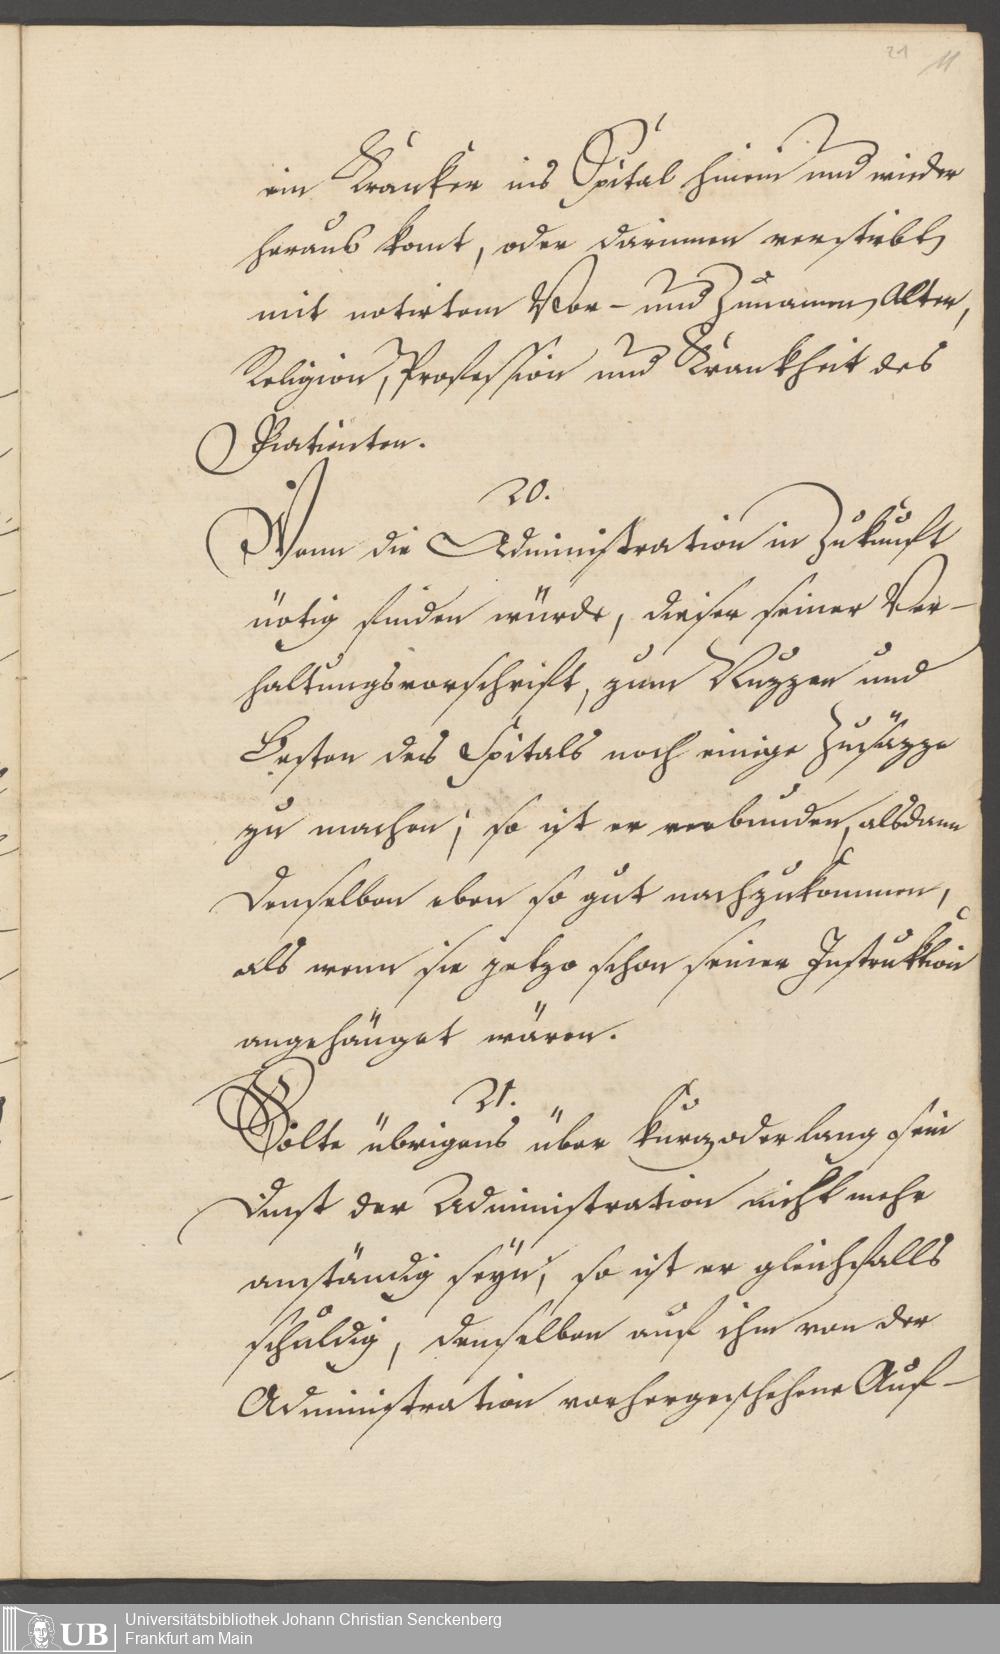 21 11
ein Kranker ins Spital hinein und wieder
heraus komt, oder darinnen verstirbt,
mit notirtem Vor- und Zunamen, Alter,
Religion, Profession und Krankheit des
Patienten.
20.
Wann die Administration in Zukunft
nötig finden würde, dieser seiner Ver-
haltungsvorschrift, zum Nuzzen und
Besten des Spitals noch einige Zusäzze
zu machen; so ist er verbunden, alsdann
denselben eben so gut nachzukommen,
als wenn sie jetzo schon seiner Instruktion
angehänget wären.
21.
Solte übrigens über kurz oder lang sein
Dinst der Administration nicht mehr
anständig seyn; so ist er gleichfalls
schuldig, denselben auf ihm von der
Administration vorhergeschehene Auf-
UB
Universitätsbibliothek Johann Christian Senckenberg
Frankfurt am Main